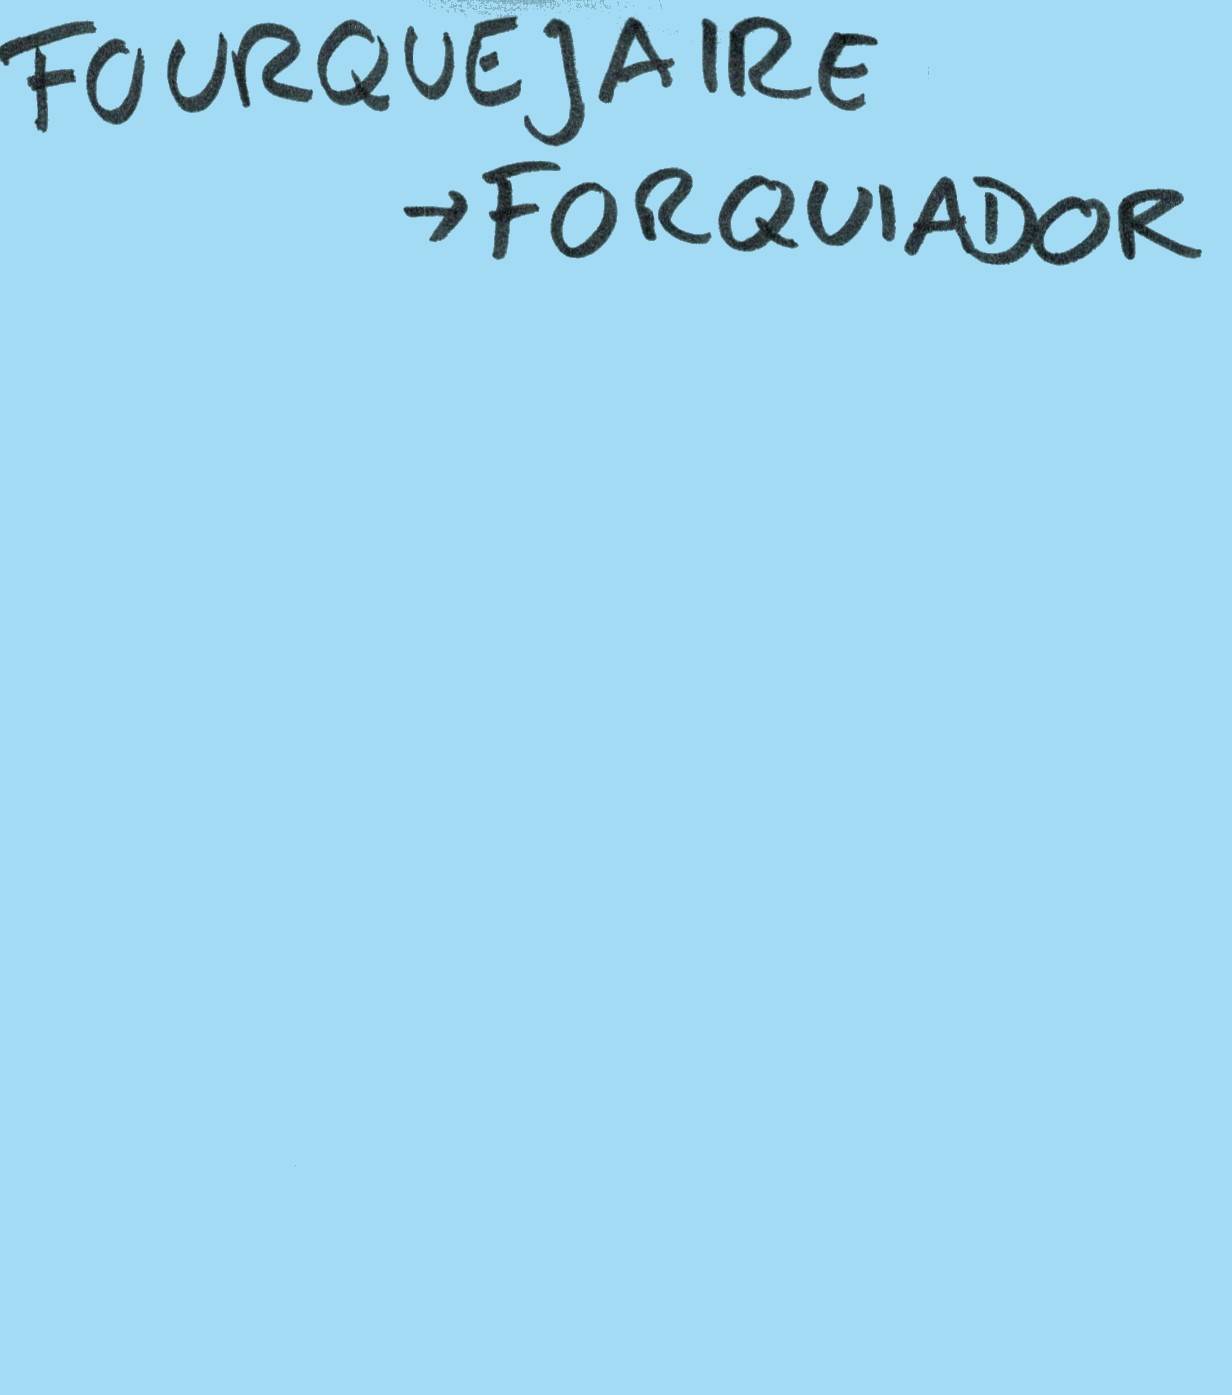 FOURQUEJAIRE
→FORQUIADOR